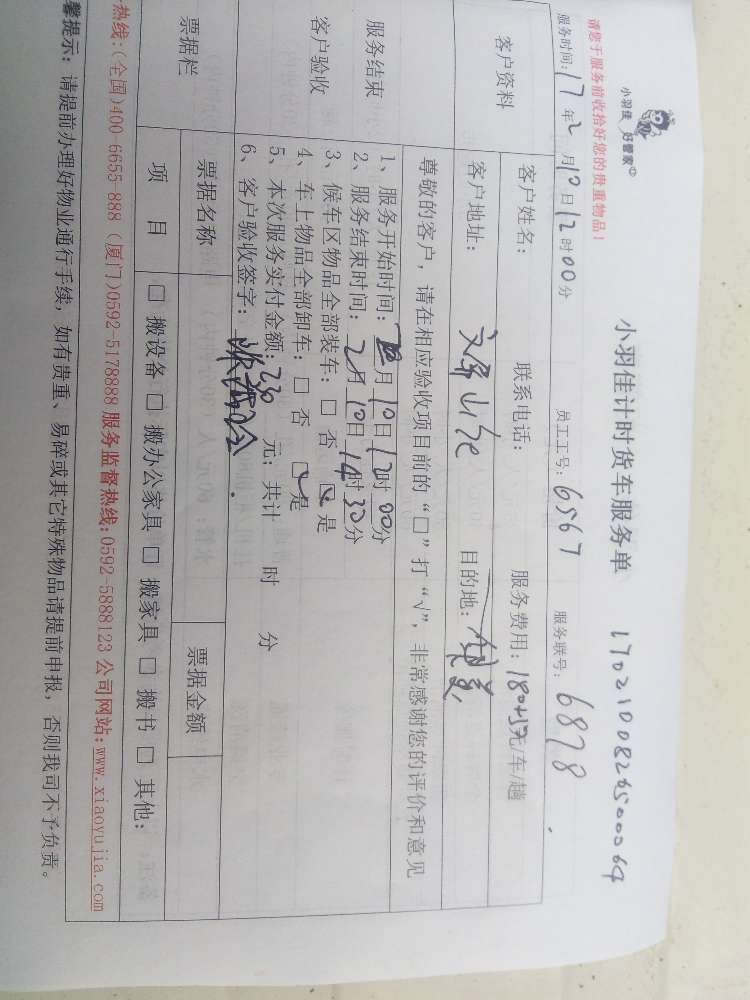 小羽佳 好管家©
请您于服务前收拾好您的贵重物品！
小羽佳计时货车服务单 1702100826500064
服务时间：17年2月10日12时00分 员工工号：6567 服务联号：6878
客户资料
客户姓名： 联系电话： 服务费用：180+50元/车/趟
客户地址： 文屏山庄 目的地：
服务结束
客户验收
尊敬的客户，请在相应验收项目前的“□”打“√”，非常感谢您的评价和意见
1、服务开始时间：2月10日12时00分
2、服务结束时间：2月10日14时30分
3、候车区物品全部装车：□ 否 ☑ 是
4、车上物品全部卸车：□ 否 ☑ 是
5、本次服务实付金额：230元；共计 时 分
6、客户验收签字：
票据栏 票据名称 票据金额
项 目 □ 搬设备 □ 搬办公家具 □ 搬家具 □ 搬书 □ 其他：
热线：(全国)400-6655-888 (厦门)0592-5178888 服务监督热线：0592-5888123 公司网站：www.xiaoyujia.com
馨提示：请提前办理好物业通行手续，如有贵重、易碎或其它特殊物品请提前申报，否则我司不予负责。